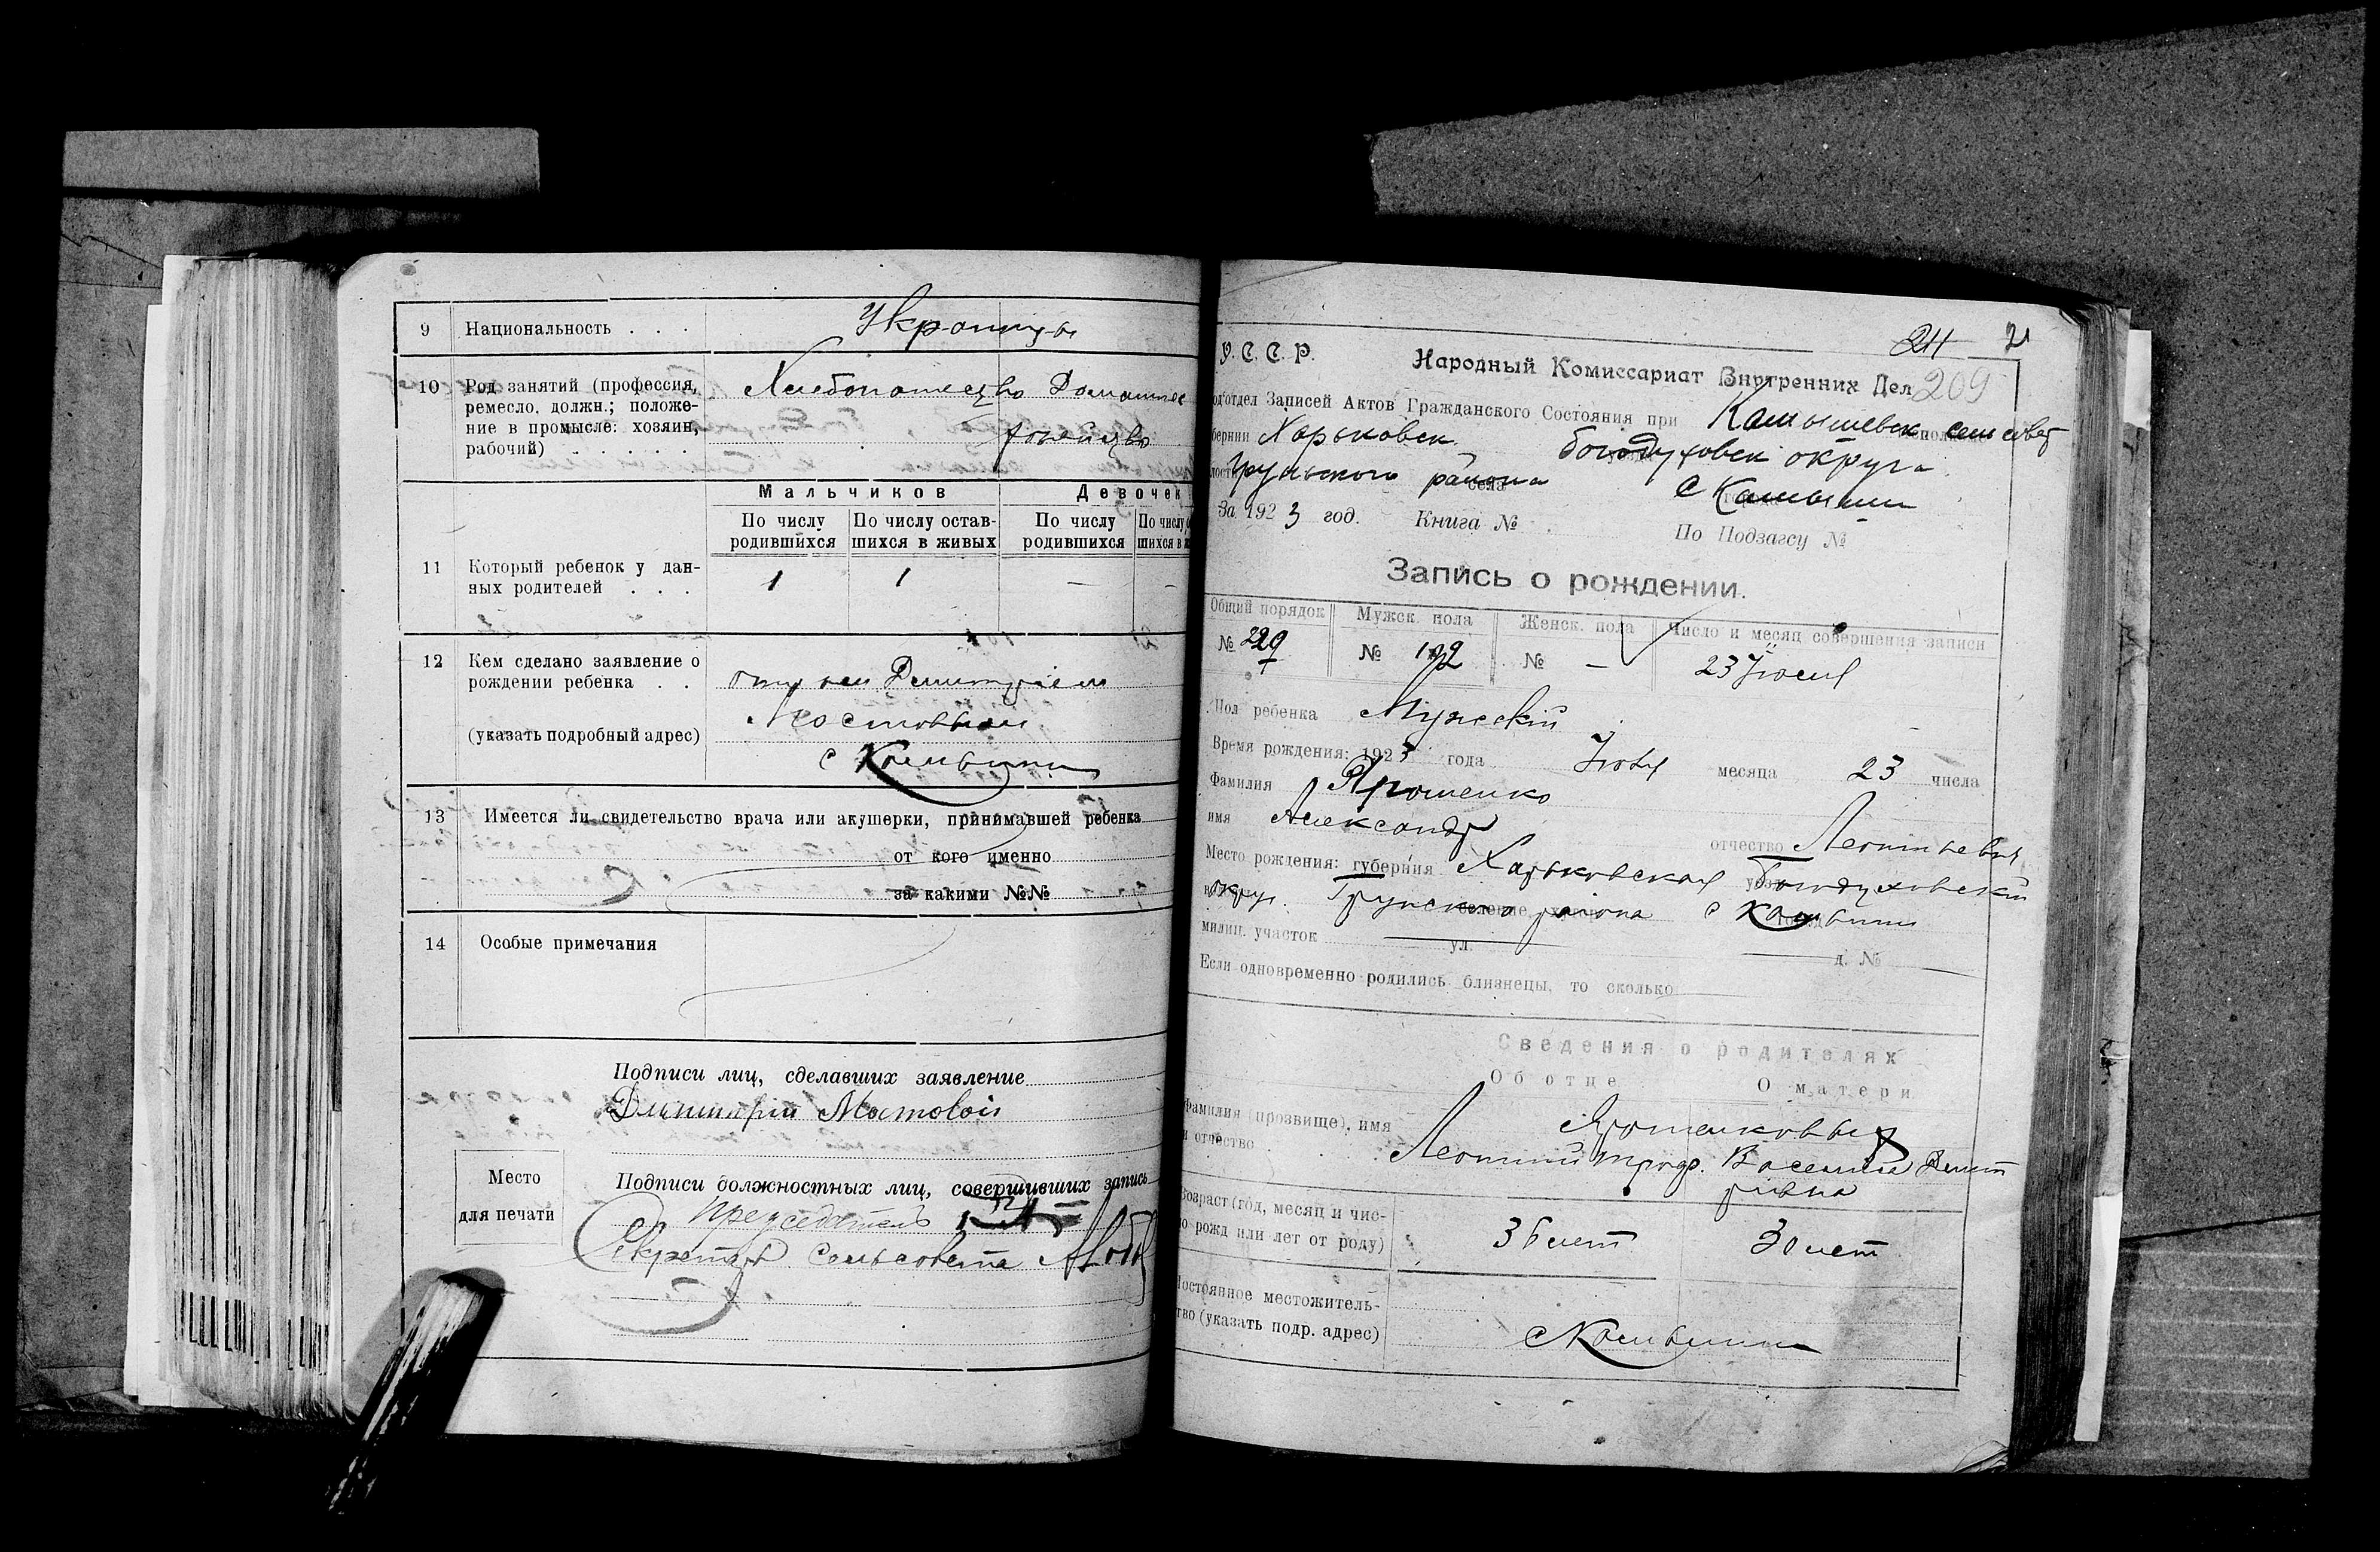 9 Национальность . . . Украинцы
10 Род занятий (профессия, ремесло, должн.; положение в промысле: хозяин, рабочий) . . . . .
Хлебопашество Домашнее
хозяйство
Мальчиков Девочек
По числу родившихся
По числу оставшихся в живых
По числу родившихся
По числу
11 Который ребенок у данных родителей . . .
1 1 — -
12 Кем сделано заявление о рождении ребенка . .
(указать подробный адрес)
отцем Димитрием
Мостовым
с Камыши
13 Имеется ли свидетельство врача или акушерки, принимавшей ребенка
от кого именно
за какими №№
14 Особые примечания
Подписи лиц, сделавших заявление
Димитрий Мостовой
Место
для печати
Подписи должностных лиц, совершивших запись
Председатель
Секретарь Сельсовета
211 21
У. С. С. Р. Народный Комиссариат Внутренних Дел 209
од'отдел Записей Актов Гражданского Состояния при Камышевск сельсовет
бернии Харьковск. богодуховск округа
Грунского района с Камыши
За 1923 год. Книга № По Подзагсу №
Запись о рождении.
Общий порядок Мужск. пола Женск. пола Число и месяц совершения записи
№ 229 № 192 № — 23 Июля
Пол ребенка Мужескій
Время рождения: 1923 года Июля месяца 23 числа
Фамилия Ярошенко
имя Александр отчество Леонтьевич
Место рождения: губерния Харьковская уезд Богодуховский
округ. Грунского района с Камыши
милиц. участок ул. д. №
Если одновременно родились близнецы, то сколько
Сведения о родителях
Об отце О матери
Фамилия (прозвище), имя
и отчество . . . .
Ярошенковы
Леонтий Васелиса Димит
ривна
Возраст (год, месяц и чис-
ло рожд или лет от роду)
36 лет 30 лет
Постоянное местожитель-
ство (указать подр. адрес)
с Камыши